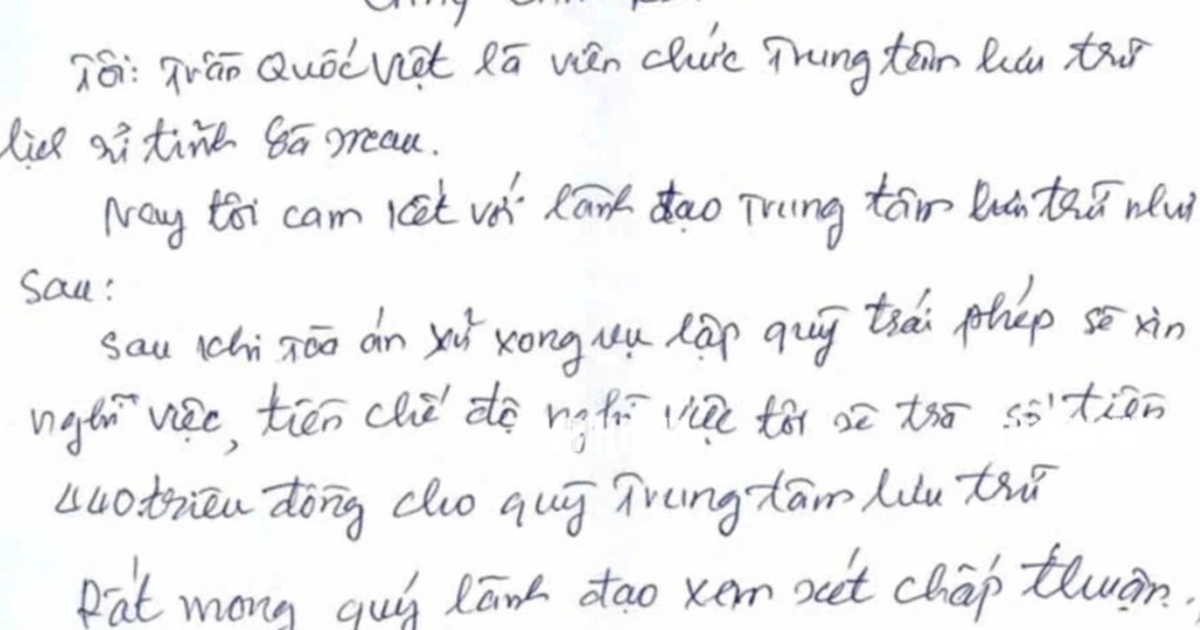 Tôi: Trần Quốc Việt là viên chức Trung tâm lưu trữ
lịch sử tỉnh Cà Mau.
Nay tôi cam kết với lãnh đạo Trung tâm lưu trữ như
sau:
Sau khi Tòa án xử xong vụ lập quỹ trái phép sẽ xin
nghỉ việc, tiền chế độ nghỉ việc tôi sẽ trả số tiền
440 triệu đồng cho quỹ Trung tâm lưu trữ
Rất mong quý lãnh đạo xem xét chấp thuận.